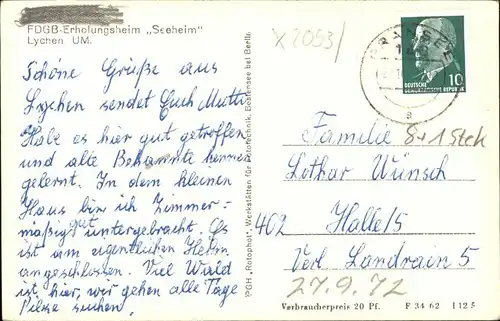 FDGB-Erholungsheim „Seeheim"
Lychen UM.
X 2093/
Schöne Grüße aus
Lychen sendet Euch Mutti
Habe es hier gut getroffen
und alte Bekannte kennen
gelernt. In dem kleinen
Haus bin ich Zimmer-
mäßig gut untergebracht. Es
ist am eigentlichen Heim
angeschlossen. Viel Wald
ist hier, wir gehen alle Tage
Pilze suchen.
PGH „Rotophot", Werkstätten für Fototechnik, Bestensee bei Berlin.
GRANSEE
a
10
DEUTSCHE
DEMOKRATISCHE REPUBLIK
Familie 8+1 Stck
Lothar Wünsch
402 Halle/S
Verl Landrain 5
27.9.72
Verbraucherpreis 20 Pf. F 34 62 I 12 5